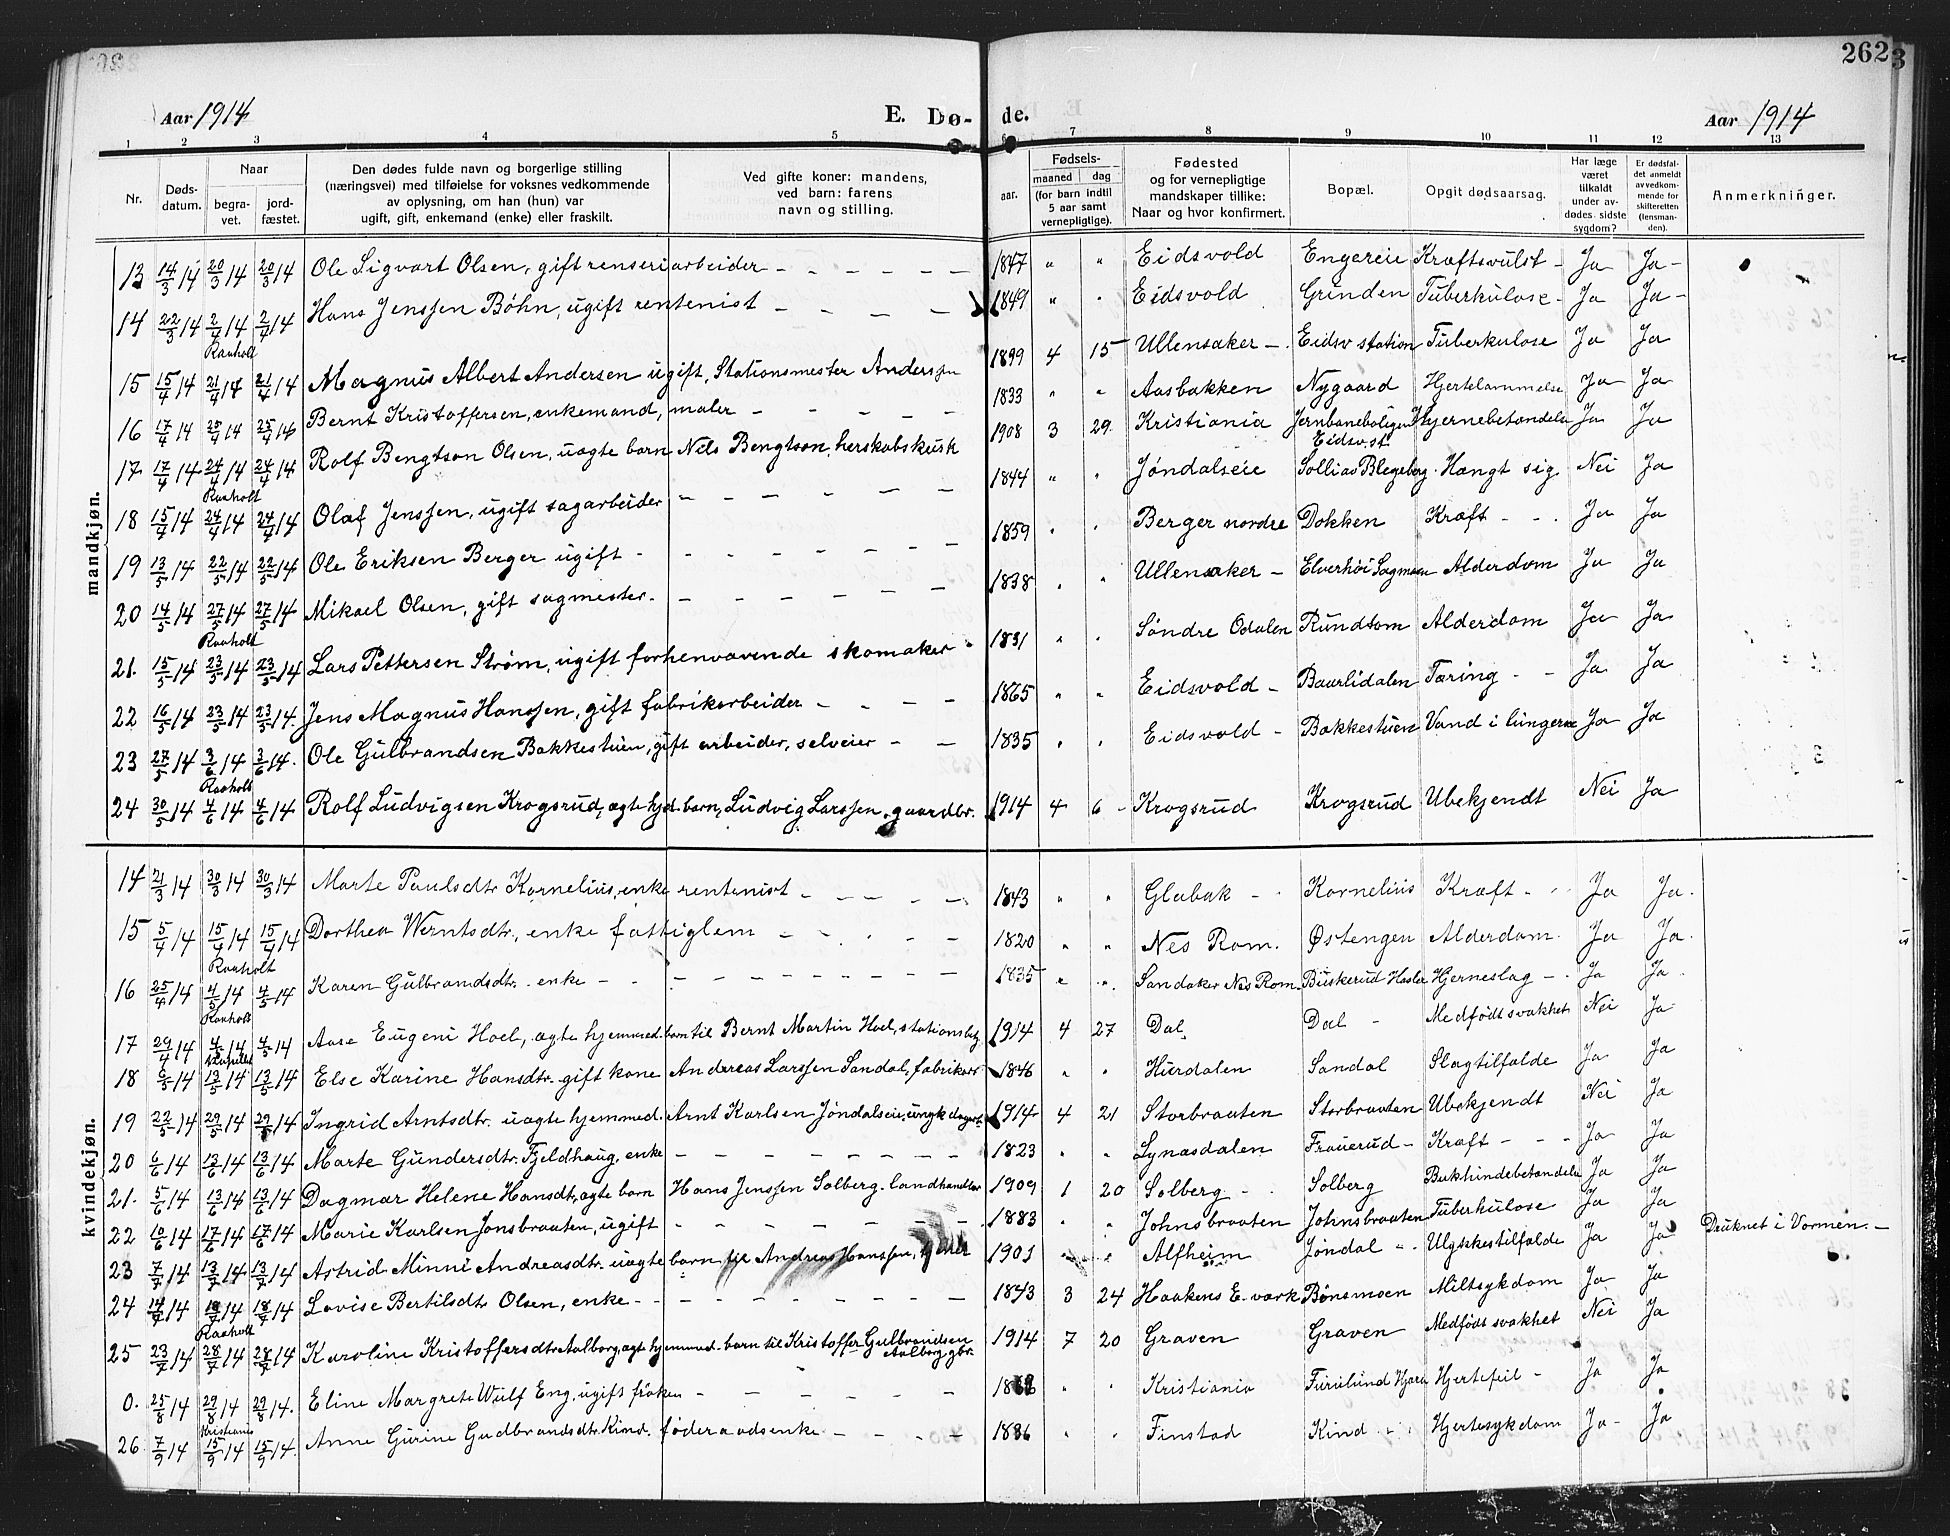 262
3
Aar 1914
E. Dø- de.
Aar 1914
1 2 3 4 5 6 7 8 9 10 11 12 13
Nr.
Døds-datum.
Naar
begra-vet.
jord-fæstet.
Den dødes fulde navn og borgerlige stilling (næringsvei) med tilføielse for voksnes vedkommende av oplysning, om han (hun) var ugift, gift, enkemand (enke) eller fraskilt.
Ved gifte koner: mandens, ved barn: farens navn og stilling.
Fødsels-
aar.
maaned dag
(for barn indtil 5 aar samt vernepligtige).
Fødested og for vernepligtige mandskaper tillike: Naar og hvor konfirmert.
Bopæl.
Opgit dødsaarsag.
Har læge været tilkaldt under av-dødes sidste sygdom?
Er dødsfal-det anmeldt av vedkom-mende for skifteretten (lensman-den).
Anmerkninger.
mandkjøn.
13 14/3 14 20/3 14 20/3 14 Ole Sigvart Olsen, gift renseriarbeider - - - - - 1847 " " Eidsvold Engereie Kræftsvulst - Ja Ja -
14 22/3 14 2/4 14 2/4 14 Hans Jenssen Bøhn, ugift rentenist - - - - 1849 " " Eidsvold Grinden Tuberkulose - Ja Ja -
Raaholt
15 15/4 14 21/4 14 21/4 14 Magnus Albert Andersen ugift, Stationsmester Andersen 1899 4 15 Ullensaker - Eidsv station Tuberkulose Ja Ja
16 17/4 14 25/4 14 25/4 14 Bernt Kristoffersen, enkemand, maler - - - - 1833 " " Aasbakken Nygaard Hjertelammelse Ja Ja
17 17/4 14 24/4 14 24/4 14 Rolf Bengtson Olsen, uægte barn Nils Bengtson herskabskusk 1908 3 29 Kristiania Jernbaneboligen Eidsv.st. Hjernebetændelse Ja Ja
Raaholt
18 15/4 14 24/4 14 24/4 14 Olaf Jenssen, ugift sagarbeider - - - - - 1844 " " Jøndalseie Solliao Blegeberg Hængt sig Nei Ja
19 13/5 14 22/5 14 22/5 14 Ole Eriksen Berger ugift - - - - - - - 1859 " " Berger nordre Dokken Kræft - - Ja Ja
20 14/5 14 27/5 14 27/5 14 Mikael Olsen, gift sagmester - - - - - - - 1838 " " Ullensaker - Elverhøi Sagmoen Alderdom Ja Ja
Raaholt
21. 15/5 14 23/5 14 23/5 14 Lars Pettersen Strøm, ugift forhenværende skomaker - 1831 " " Søndre Odalen Rundtom Alderdom Ja Ja
22 16/5 14 23/5 14 23/5 14. Jens Magnus Hanssen, gift fabrikarbeider - - - - 1865 " " Eidsvold - Baarlidalen Tæring - - Ja Ja
23 27/5 14 3/6 14 3/6 14. Ole Gulbrandsen Bakkestuen, gift arbeider, selveier - - 1835 " " Eidsvold - Bakkestuen Vand i lungerne Ja Ja
Raaholt
24 30/5 14 4/6 14 4/6 14 Rolf Ludvigsen Krogsrud, ægte hjd. barn, Ludvig Larssen, gaardbr. 1914 4 6 - Krogsrud Krogsrud Ubekjendt Nei Ja
kvindekjøn.
14 21/3 14 30/3 14 30/3 14 Marte Paulsdtr Kornelius, enke rentenist - - - - - 1843 " " Glabak - Kornelius Kræft - Ja Ja.
15 5/4 14 15/4 14 15/4 14 Dorthea Werntsdtr., enke fattiglem - - - - - 1820 " " Nes Rom. Østengen Alderdom Ja Ja.
Raaholt
16 25/4 14 4/5 14 4/5 14 Karen Gulbrandsdtr. enke - - - - - - - - - 1835 " " Sandaker Nes Rom. Buskerud Hasler Hjerneslag - Ja Ja.
Raaholt
17 29/4 14 4/5 14 4/5 14 Aase Eugeni Hoel, ægte hjemmed. barn til Bernt Martin Hoel, stationsbetj. 1914 4 27 Dal Dal - Medfødt svakhet Nei Ja
18 6/5 14 13/5 14 13/5 14 Else Karine Hansdtr. gift kone Andreas Larssen Sandal, fabrikarb 1846 " " Hurdalen Sandal Slagtilfælde Ja Ja
19 22/5 14 29/5 14 29/5 14 Ingrid Arntsdtr. uægte hjemmed. Arnt Karlsen Jøndalseie, ungk. dagarb. 1914 4 21 Storbraaten Storbraaten Ubekjendt Nei Ja
20 6/6 14 13/6 14 13/6 14 Marte Gundersdtr. Fjeldhaug, enke - - - - - - - 1823 " " Lynæsdalen Frauerud - Kræft - - - Ja Ja
21. 5/6 14 13/6 14 13/6 14 Dagmar Helene Hansdt., ægte barn Hans Jenssen Solberg. landhandler 1909 1 20 Solberg - Solberg Bukhindebetændelse Ja Ja
22 10/6 14 17/6 14 17/6 14 Marie Karlsen Jonsbraaten, ugift - - - - - - 1883 " " Johnsbraaten Johnsbraaten Tuberkulose Ja Ja
23 7/7 14 13/7 14 13/7 14 Astrid Minni Andreasdtr. uægte barn til Andreas Hanssen, 1901 " " Alfheim Jøndal - Ulykkestilfælde Ja Ja Druknet i Vormen. -
24 14/7 14 18/7 14 18/7 14 Lovise Bertilsdtr Olsen, enke - - - - - - - - - 1843 3 24 Haakens E. værk Bønsmoen Miltsykdom Ja Ja
Raaholt
25 23/7 14 28/7 14 28/7 14 Karoline Kristoffersdtr Aalborg, ægt hjemmed. barn til Kristoffer Gulbrandsen Aalborg gbr. 1914 7 20 Graven Graven Medfødt svakhet Nei Ja
0. 25/8 14 29/8 14 29/8 14. Eline Margrete Wulf Eng, ugift frøken - - - - - " " Kristiania Furulund Hjera Hjertefeil - Ja Ja
Kristiania
26 7/9 14 15/9 14 15/9 14. Anne Gurine Gudbrandsdtr. Kind. føderaadsenke - - - - 1836 " " Finstad Kind - Hjertesykdom Ja - Ja